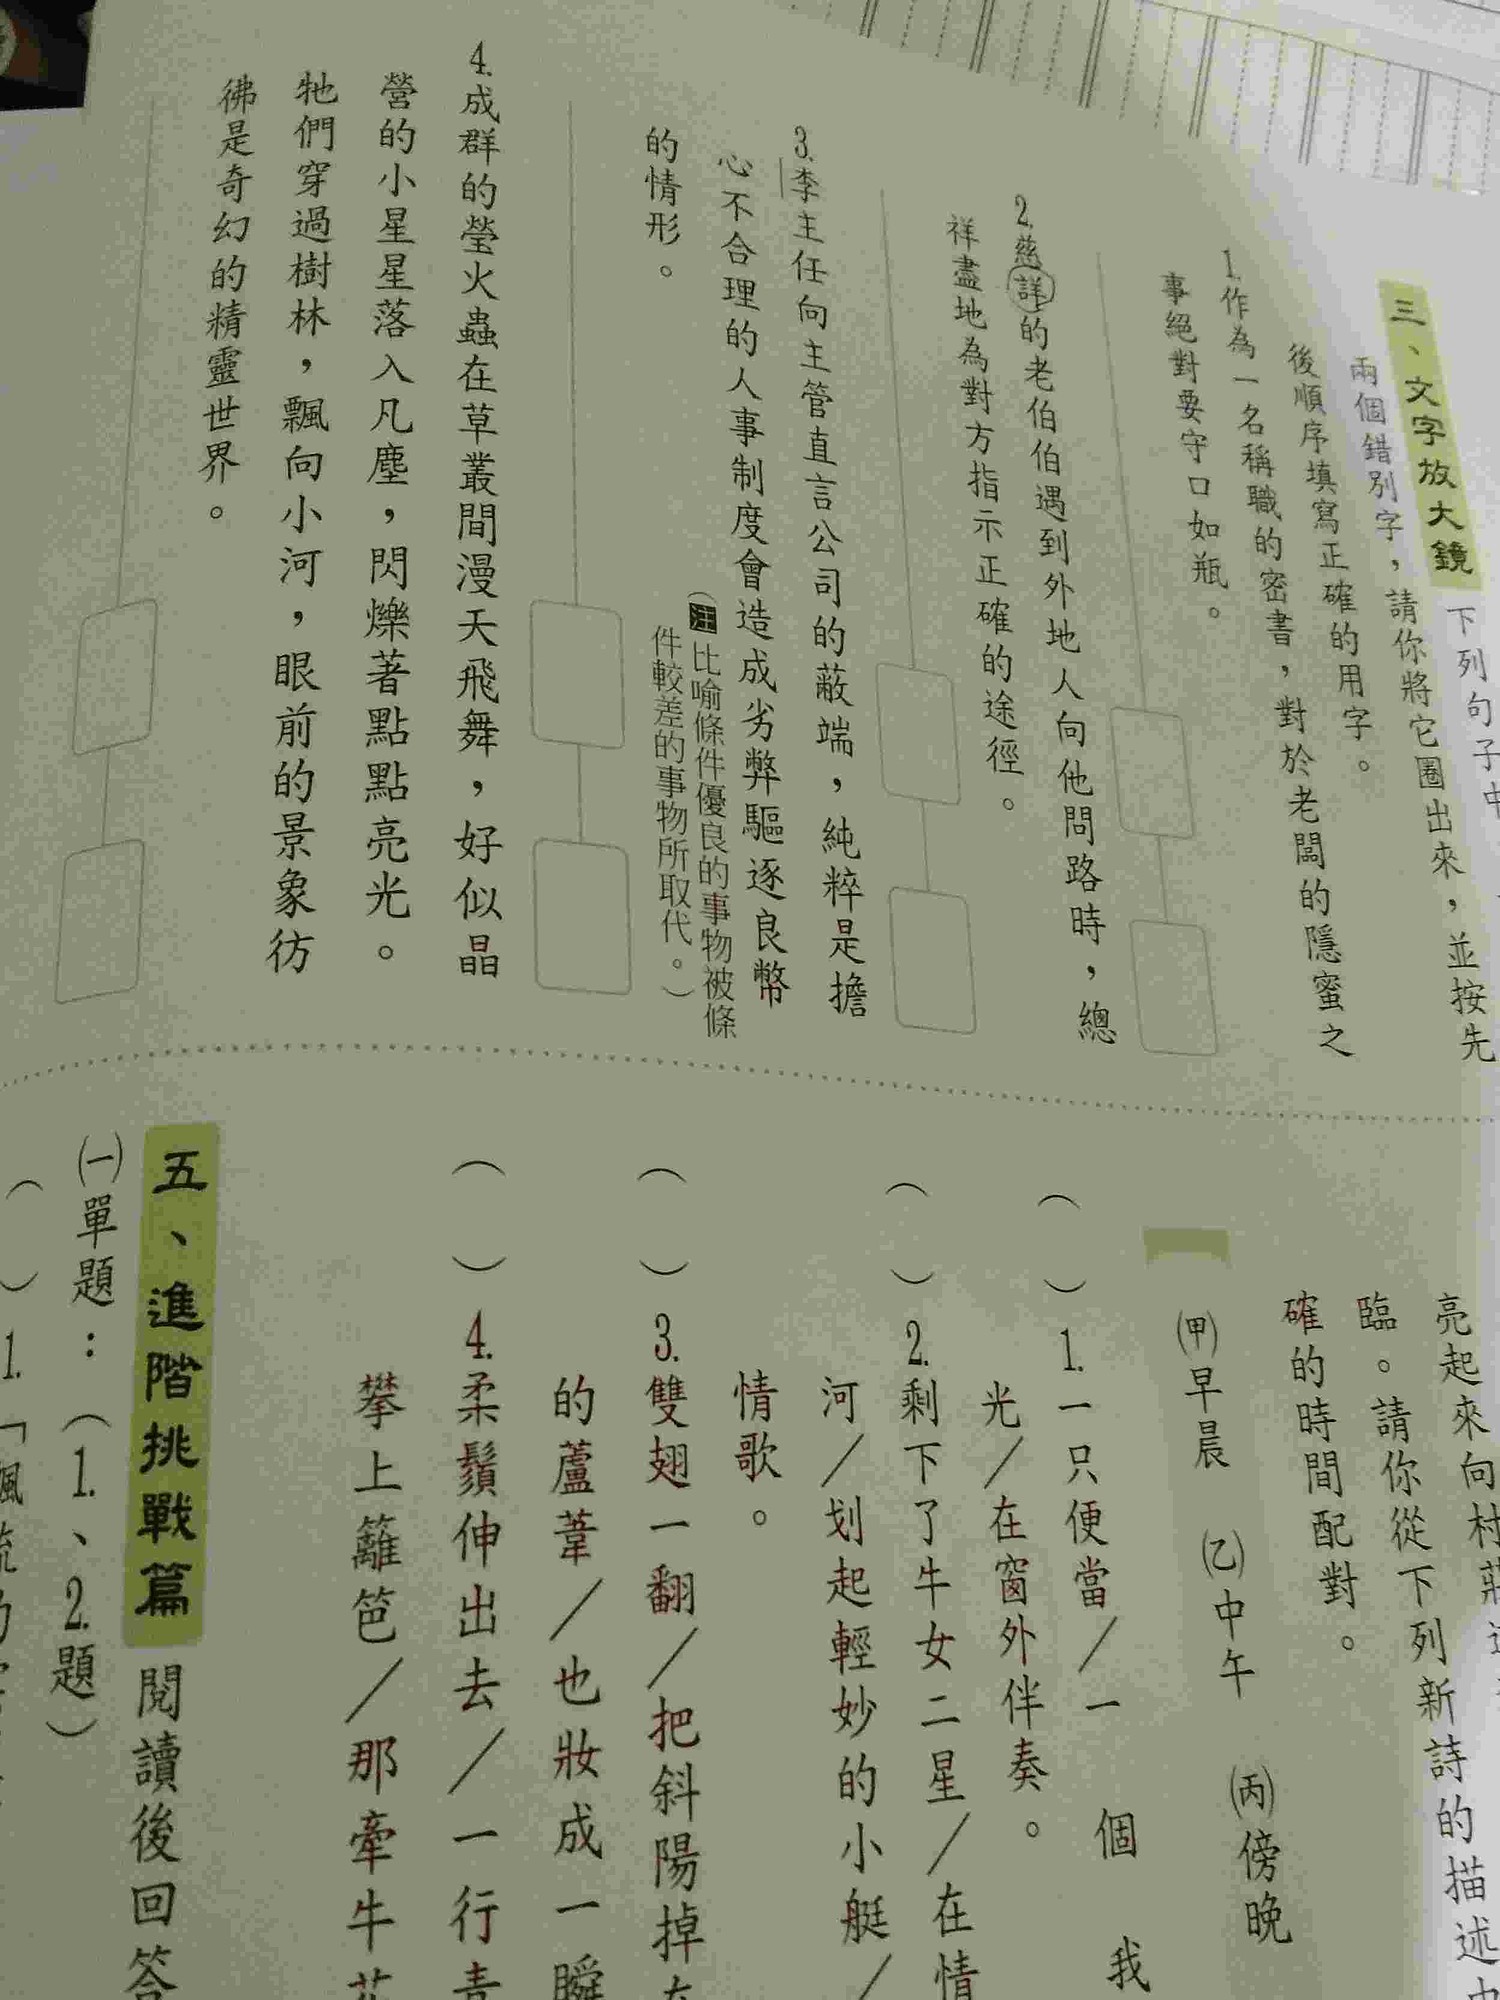 三、文字放大鏡 下列句子中
兩個錯別字，請你將它圈出來，並按先
後順序填寫正確的用字。
1.作為一名稱職的密書，對於老闆的隱蜜之
事絕對要守口如瓶。
2.慈詳的老伯伯遇到外地人向他問路時，總
祥盡地為對方指示正確的途徑。
3.李主任向主管直言公司的蔽端，純粹是擔
心不合理的人事制度會造成劣弊驅逐良幣
的情形。
（注比喻條件優良的事物被條
件較差的事物所取代。）
4.成群的瑩火蟲在草叢間漫天飛舞，好似晶
營的小星星落入凡塵，閃爍著點點亮光。
牠們穿過樹林，飄向小河，眼前的景象彷
彿是奇幻的精靈世界。
亮起來向村莊
臨。請你從下列新詩的描述中
確的時間配對。
㈙早晨 ㈚中午 ㈛傍晚
（ ）1.一只便當／一 個 我
光／在窗外伴奏。
（ ）2.剩下了牛女二星／在情
河／划起輕妙的小艇／
情歌。
（ ）3.雙翅一翻／把斜陽掉在
的蘆葦／也妝成一瞬
（ ）4.柔鬚伸出去／一行青
攀上籬笆／那牽牛花
五、進階挑戰篇 閱讀後回答
㈠單題：（1.、2.題）
（ ）1.「